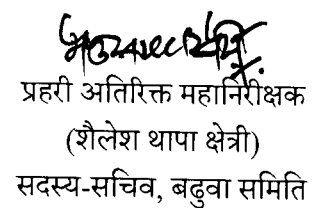 प्रहरी अतिरिक्त महानिरीक्षक
(शैलेश थापा क्षेत्री)
सदस्य-सचिव, बढुवा समिति